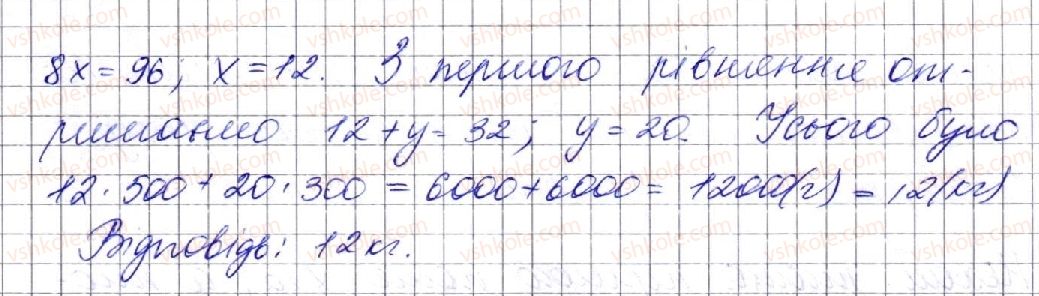 8x = 96; x = 12. З першого рівняння от-
римаємо 12 + y = 32; y = 20. Усього було
12 · 500 + 20 · 300 = 6000 + 6000 = 1200(г) = 12(кг)
Відповідь: 12 кг.